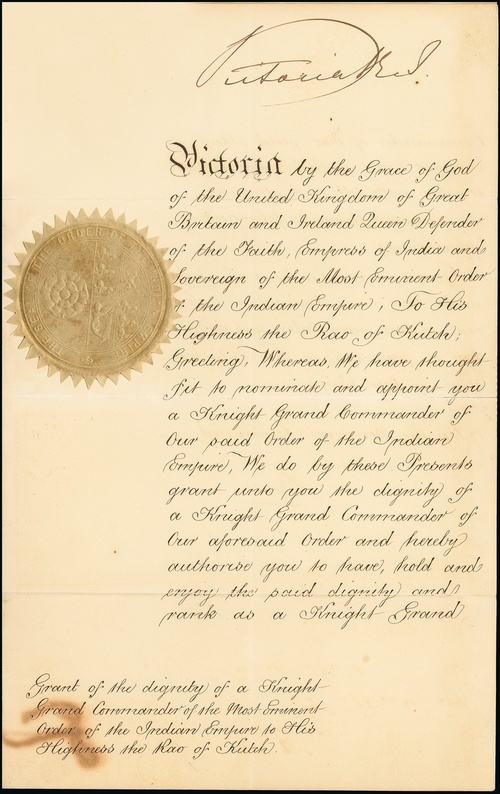 Victoria R.I.
Victoria by the Grace of God
of the United Kingdom of Great
Britain and Ireland Queen Defender
of the Faith, Empress of India and
Sovereign of the Most Eminent Order
of the Indian Empire; To His
Highness the Rao of Kutch;
Greeting, Whereas, We have thought
fit to nominate and appoint you
a Knight Grand Commander of
Our said Order of the Indian
Empire, We do by these Presents
grant unto you the dignity of
a Knight Grand Commander of
Our aforesaid Order and hereby
authorise you to have, hold and
enjoy the said dignity and
rank as a Knight Grand
THE ORDER OF
Grant of the dignity of a Knight
Grand Commander of the Most Eminent
Order of the Indian Empire to His
Highness the Rao of Kutch.